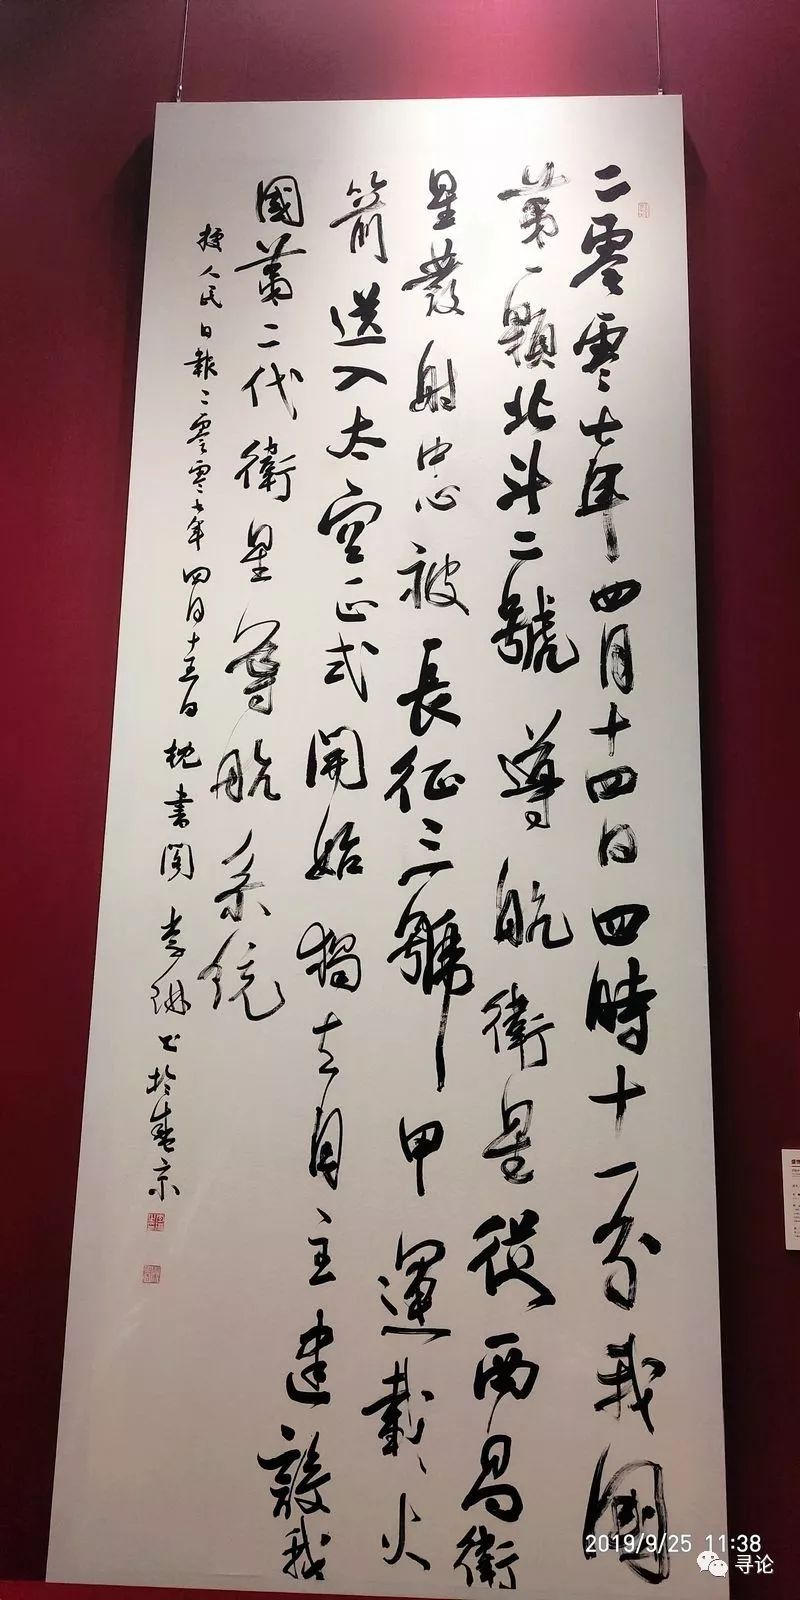 二零零七年四月十四日四時十一分我國
第一顆北斗二號導航衛星從西昌衛
星發射中心被長征三號甲運載火
箭送入太空正式開始獨立自主建設我
國第二代衛星導航系統
按人民日報二零零七年四月十五日 枕書閣 李琳書於燕京
2019/9/25 11:38
寻论